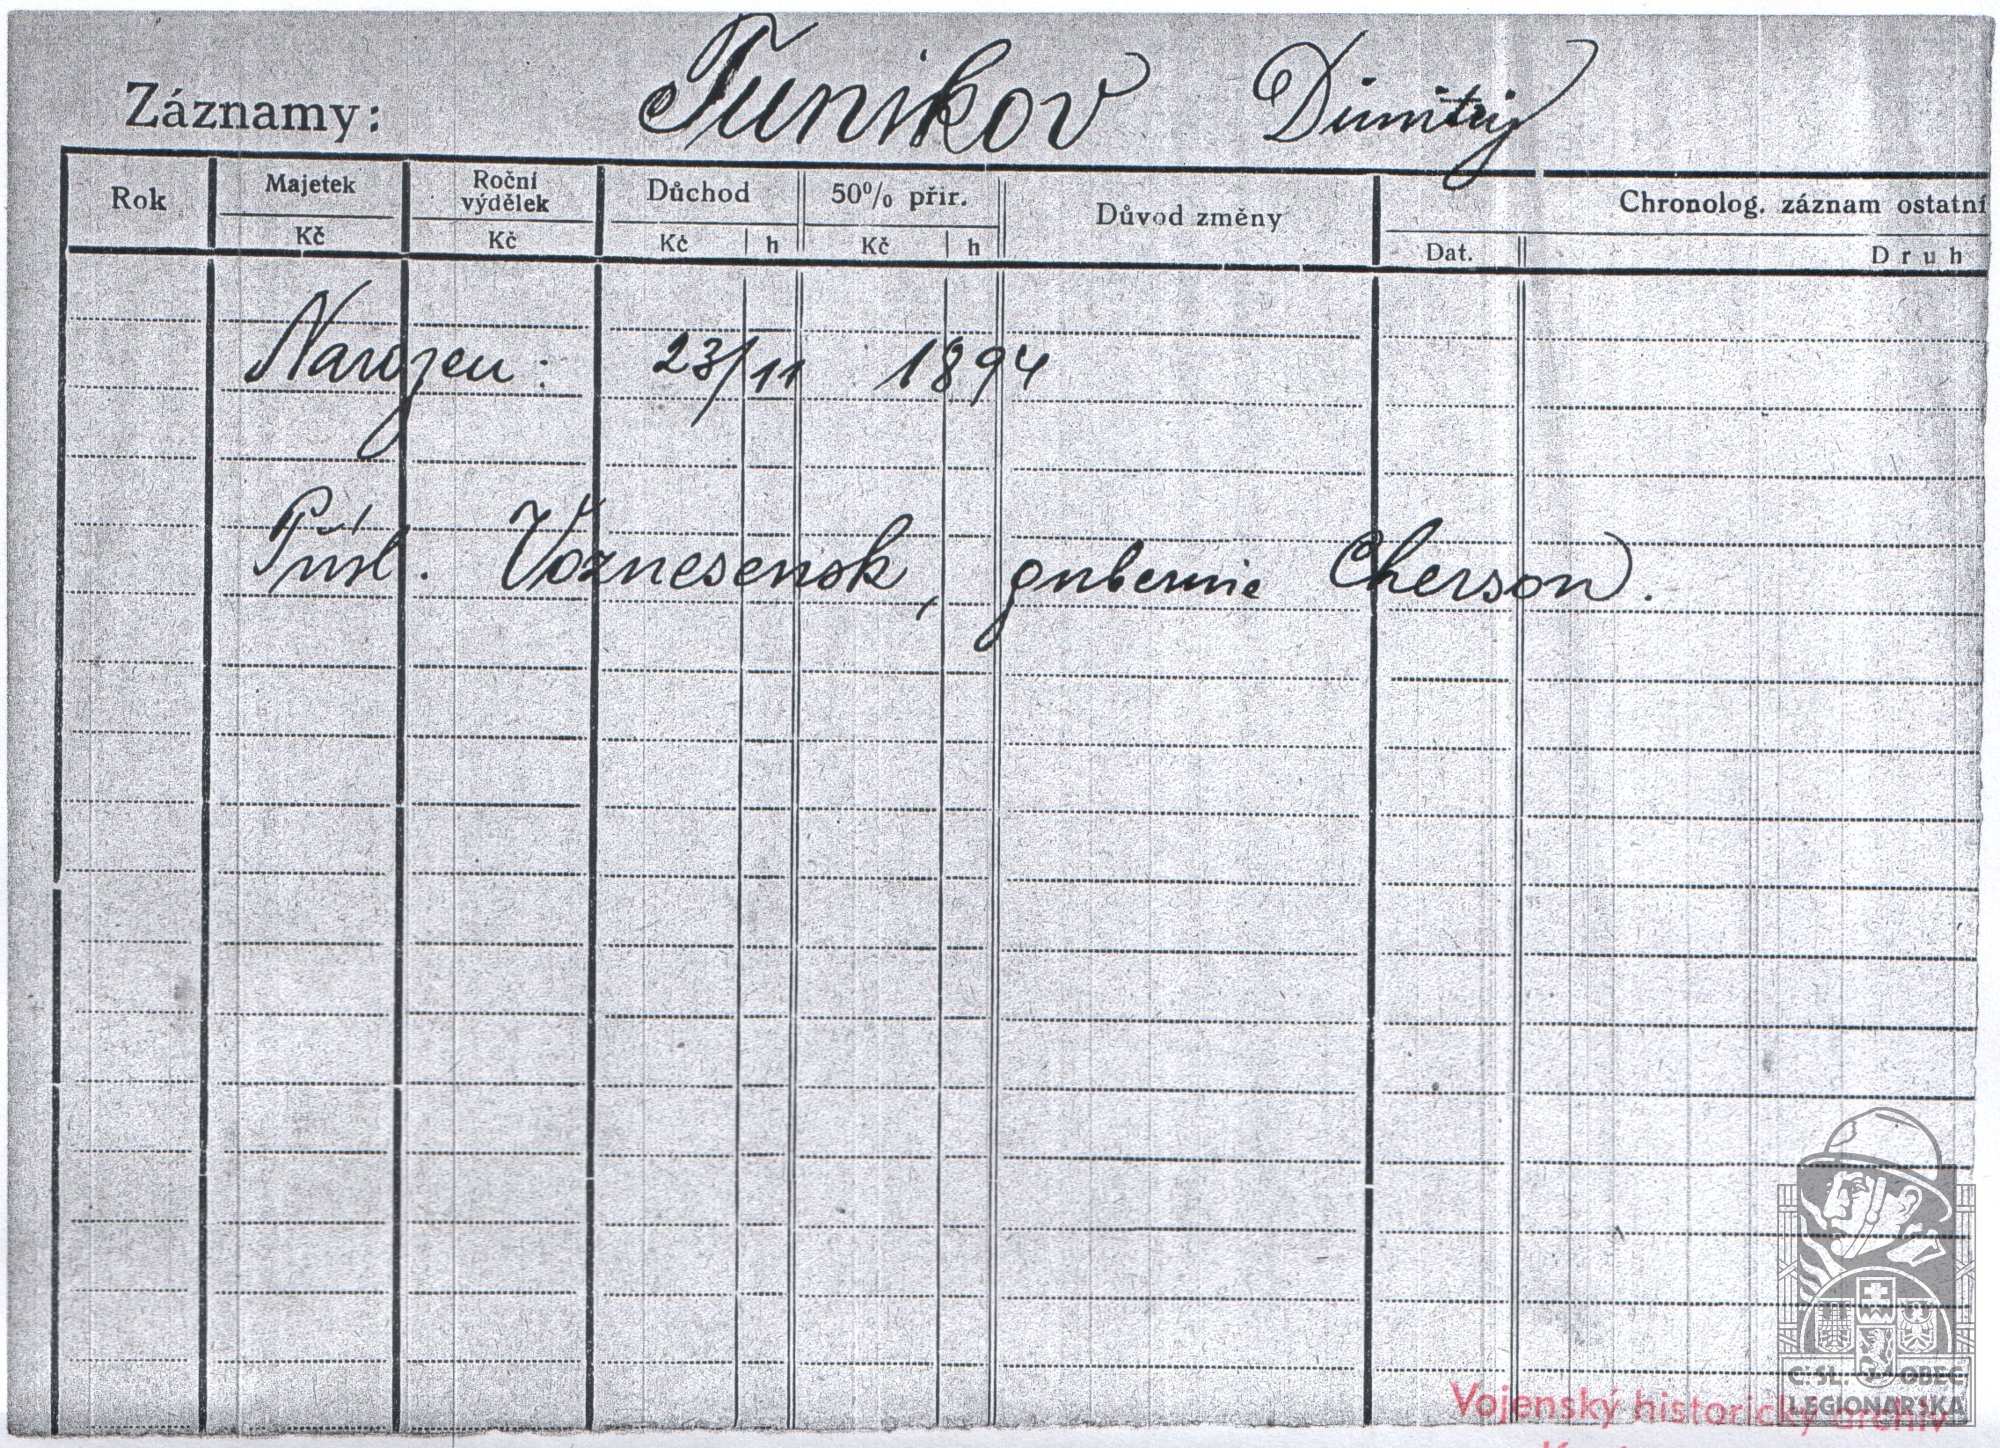 Záznamy: Tunikov Dimitrij
Rok Majetek Kč Roční výdělek Kč Důchod Kč h 50% přir. Kč h Důvod změny Chronolog. záznam ostatní Dat. Druh
Narozen: 23/11 1894
Přísl. Voznesensk, gubernie Cherson.
Č. SL. OBEC
LEGIONÁŘSKÁ
Vojenský historický archiv